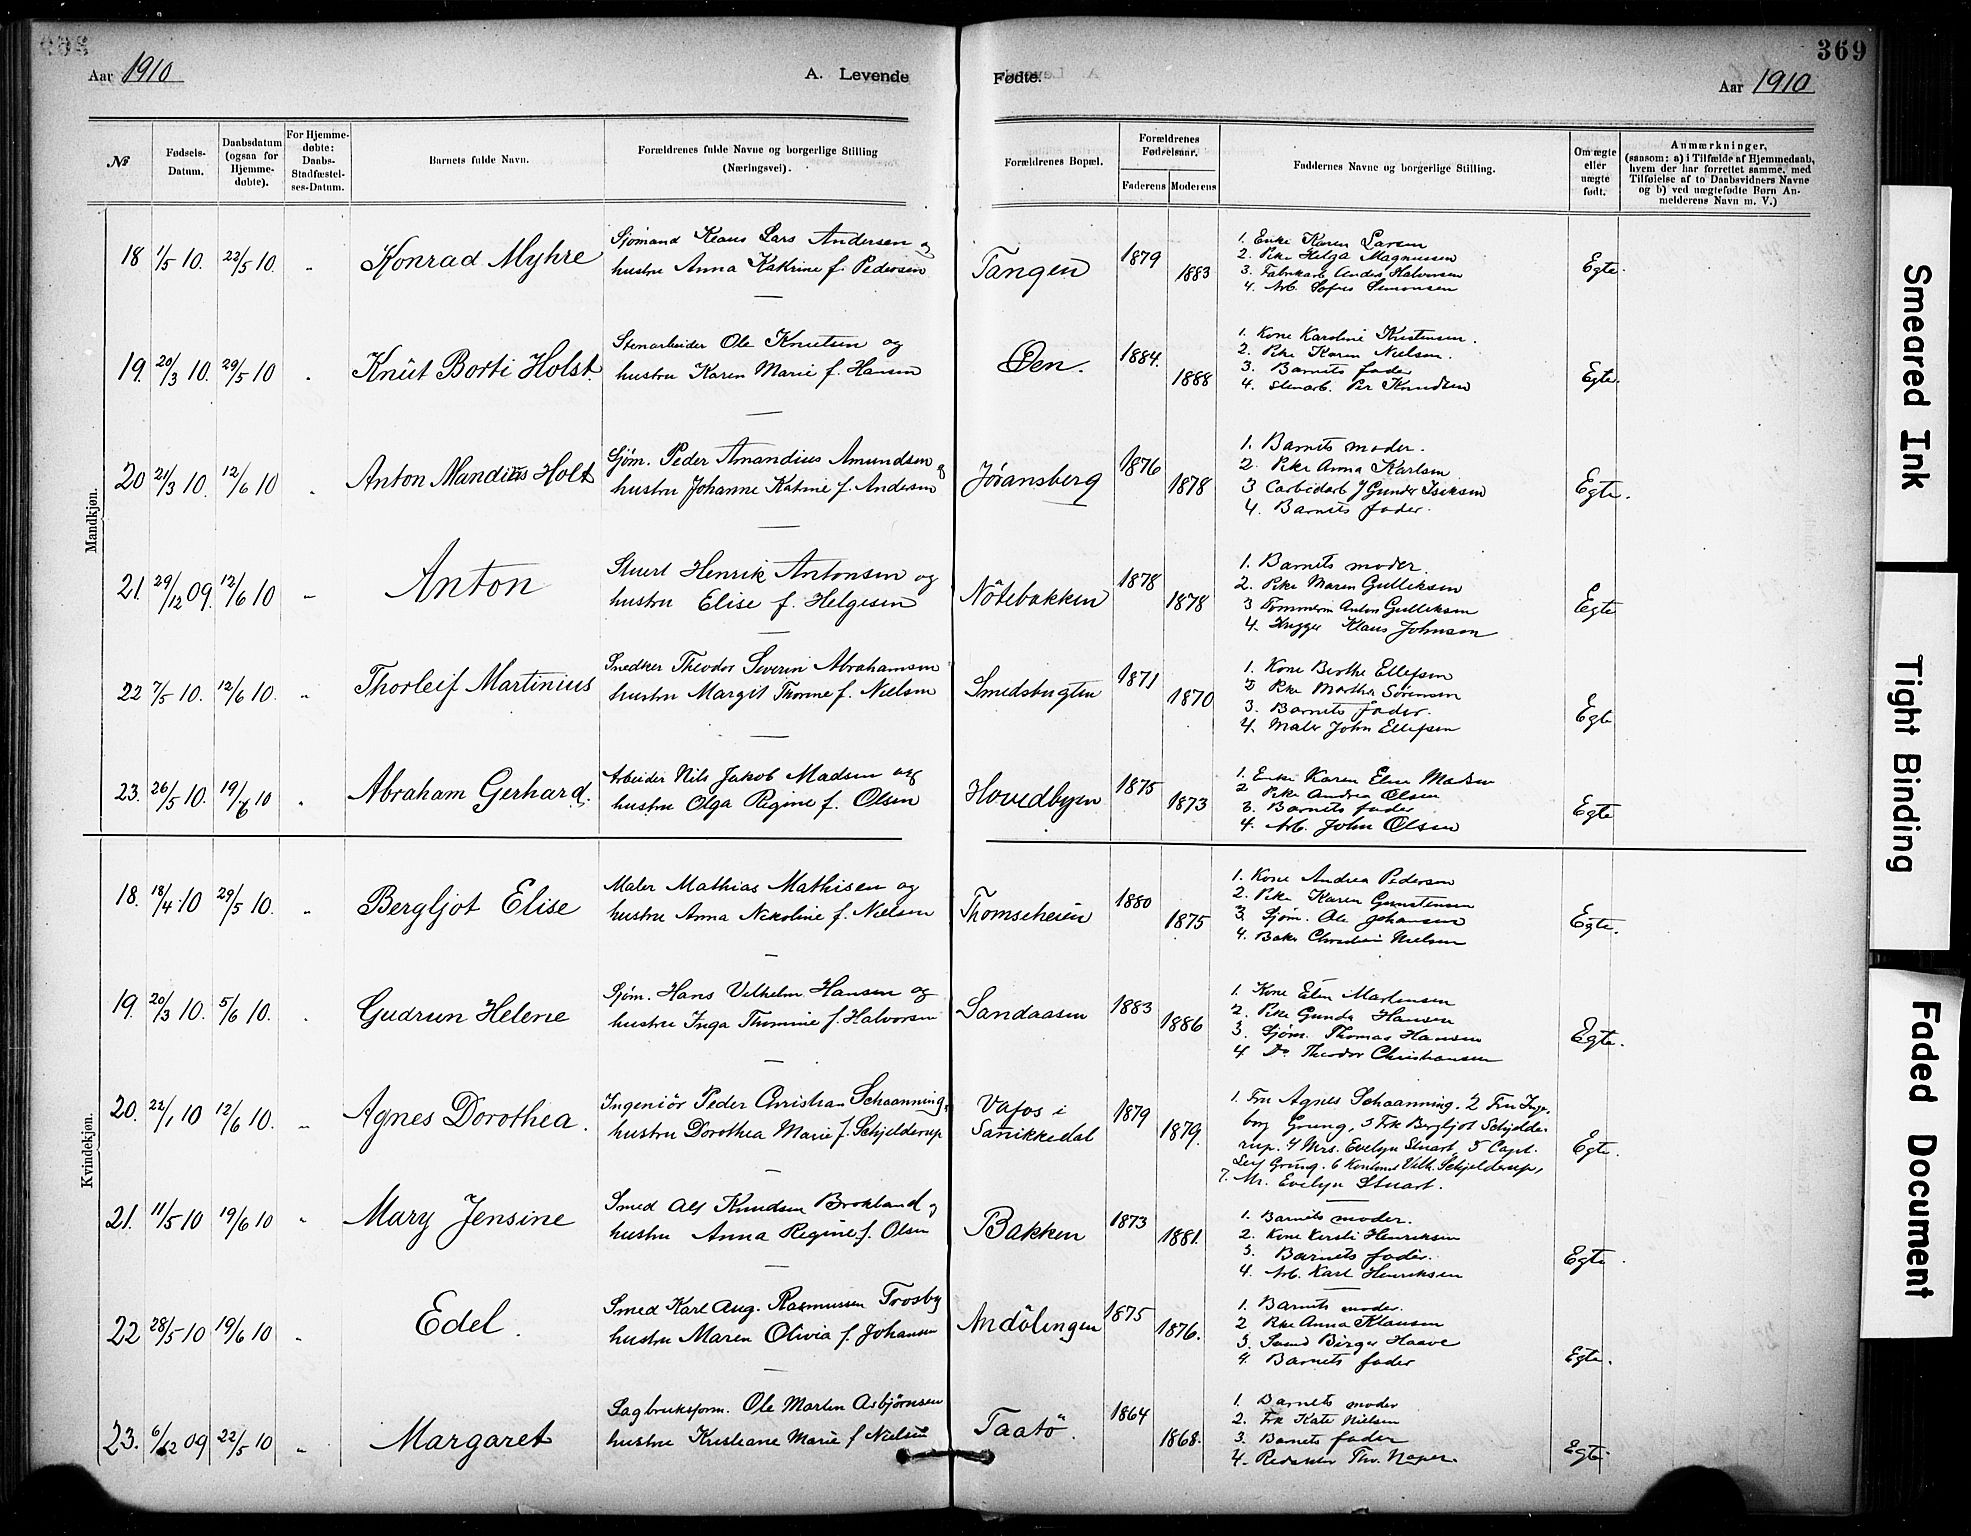 369
Aar 1910
A. Levende
Fødte.
Aar 1910
No
Fødsels-Datum.
Daabsdatum (ogsaa for Hjemme-døbte).
For Hjemme-døbte: Daabs-Stadfæstel-ses-Datum.
Barnets fulde Navn.
Forældrenes fulde Navne og borgerlige Stilling (Næringsvei).
Forældrenes Bopæl.
Forældrenes Fødselsaar.
Faderens Moderens
Faddernes Navne og borgerlige Stilling.
Om ægte eller uægte født.
Anmærkninger, (saasom: a) i Tilfælde af Hjemmedaab, hvem der har forrettet samme, med Tilføielse af to Daabsvidners Navne og b) ved uægtefødte Børn An-melderens Navn m. V.)
Mandkjøn.
18 1/5 10. 22/5 10 „ Konrad Myhre
Sjømand Klaus Lars Andersen og
hustru Anna Katrine f. Pedersen
Tangen 1879 1883
1. Enke Karen Larsen
2. Pike Helga Magnussen
3. Fabrikarb Anders Halvorsen
4. Arb. Sofus Simonsen
Egte.
19. 20/3 10. 29/5 10 „ Knut Borti Holst.
Stenarbeider Ole Knutsen og
hustru Karen Marie f. Hansen
Øen. 1884. 1888
1. Kone Karoline Kristensen.
2. Pike Karen Nielsen.
3. Barnets fader
4. Stenarb. Per Knudsen
Egte.
20 21/3 10. 12/6 10 „ Anton Mandius Holt
Sjøm. Peder Amandius Amundsen og
hustru Johanne Katrine f. Andersen
Jøransberg 1876 1878
1. Barnets moder.
2. Pike Anna Karlsen
3 Carbidarb J Gunder Isaksen
4. Barnets fader.
Egte.
21. 29/12 09. 12/6 10 „ Anton
Stuert Henrik Antonsen og
hustru Elise f. Helgesen
Nötebakken 1878 1878
1. Barnets moder.
2. Pike Maren Gulleksen
3 Tømmerm Anton Gulleksen
4. Hugger Klaus Johnsen
Egte
22 7/5 10. 12/6 10. „ Thorleif Martinius
Snedker Theodor Severin Abrahamsen
hustru Margit Thorine f. Nielsen
Smedsbugten 1871 1870
1. Kone Berthe Ellefsen
2 Pike Martha Sørensen
3. Barnets fader.
4. Maler John Ellefsen
Egte
23. 26/5 10. 19/6 10 „ Abraham Gerhard.
Arbeider Nils Jakob Madsen og
hustru Olga Regine f. Olsen
Hovedbyen 1875 1873
1. Enke Karen Elise Madsen
2 Pike Andrea Olsen
3. Barnets fader
4. Arb. John Olsen
Egte
Kvindekjøn.
18. 18/4 10 29/5 10. „ Bergljot Elise
Maler Mathias Mathisen og
hustru Anna Nikoline f. Nielsen
Thomseheien 1880 1875
1. Kone Andrea Pedersen
2. Pike Karen Gunstensen
3. Sjøm. Ole Johansen
4. Baker Christian Nielsen
Egte.
19. 20/3 10. 5/6 10. „ Gudrun Helene
Sjøm. Hans Vilhelm Hansen og
hustru Inga Thomine f. Halvorsen
Sandaasen 1883 1886
1. Kone Elen Martensen
2. Pike Gunda Hansen
3. Sjøm. Thomas Hansen
4 Do Theodor Christiansen
Egte.
20. 22/1 10 12/6 10. „ Agnes Dorothea.
Ingeniör Peder Christian Schaanning,
hustru Dorothea Marie f. Schjelderup
Vafos i Sanikkedal 1879 1879.
1. Fru Agnes Schaanning. 2 Fru Inge-
borg Grung, 3 Frk Bergljot Schjelde-
rup. 4 Mrs. Evelyn Stuart, 5 Capt.
Leif Grung. 6 Kontorist Vilh. Schjelderup,
7. Mr. Evelyn Stuart.
Egte.
21. 11/5 10 19/6 10 „ Mary Jensine
Smed Alf Knudsen Brokland og
hustru Anna Regine f. Olsen
Bakken 1873 1881.
1. Barnets moder.
2. Kone Kersti Henriksen
3. Barnets fader.
4. Arb. Karl Henriksen
Egte.
22 28/5 10 19/6 10 „ Edel.
Smed Karl Aug. Rasmussen Trosby
hustru Maren Olivia f. Johansen
Andölingen 1875 1876.
1. Barnets moder.
2 Pike Anna Klausen
3. Smed Birger Haave
4. Barnets fader
Egte.
23. 6/12 09 22/5 10 „ Margaret
Sagbruksform. Ole Martin Asbjørnsen
hustru Kristiane Marie f Nielsen
Taatö. 1864 1868.
1. Barnets moder
2. Frk Kate Nielsen
3. Barnets fader
4. Redaktør Thv.
Egte
Smeared Ink
Tight Binding
Faded Document